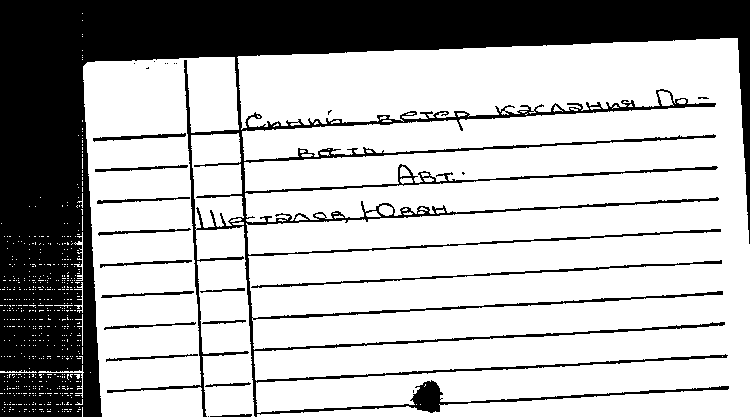 Синий ветер каслания По-
весть.
Авт.
Шесталов, Юван.